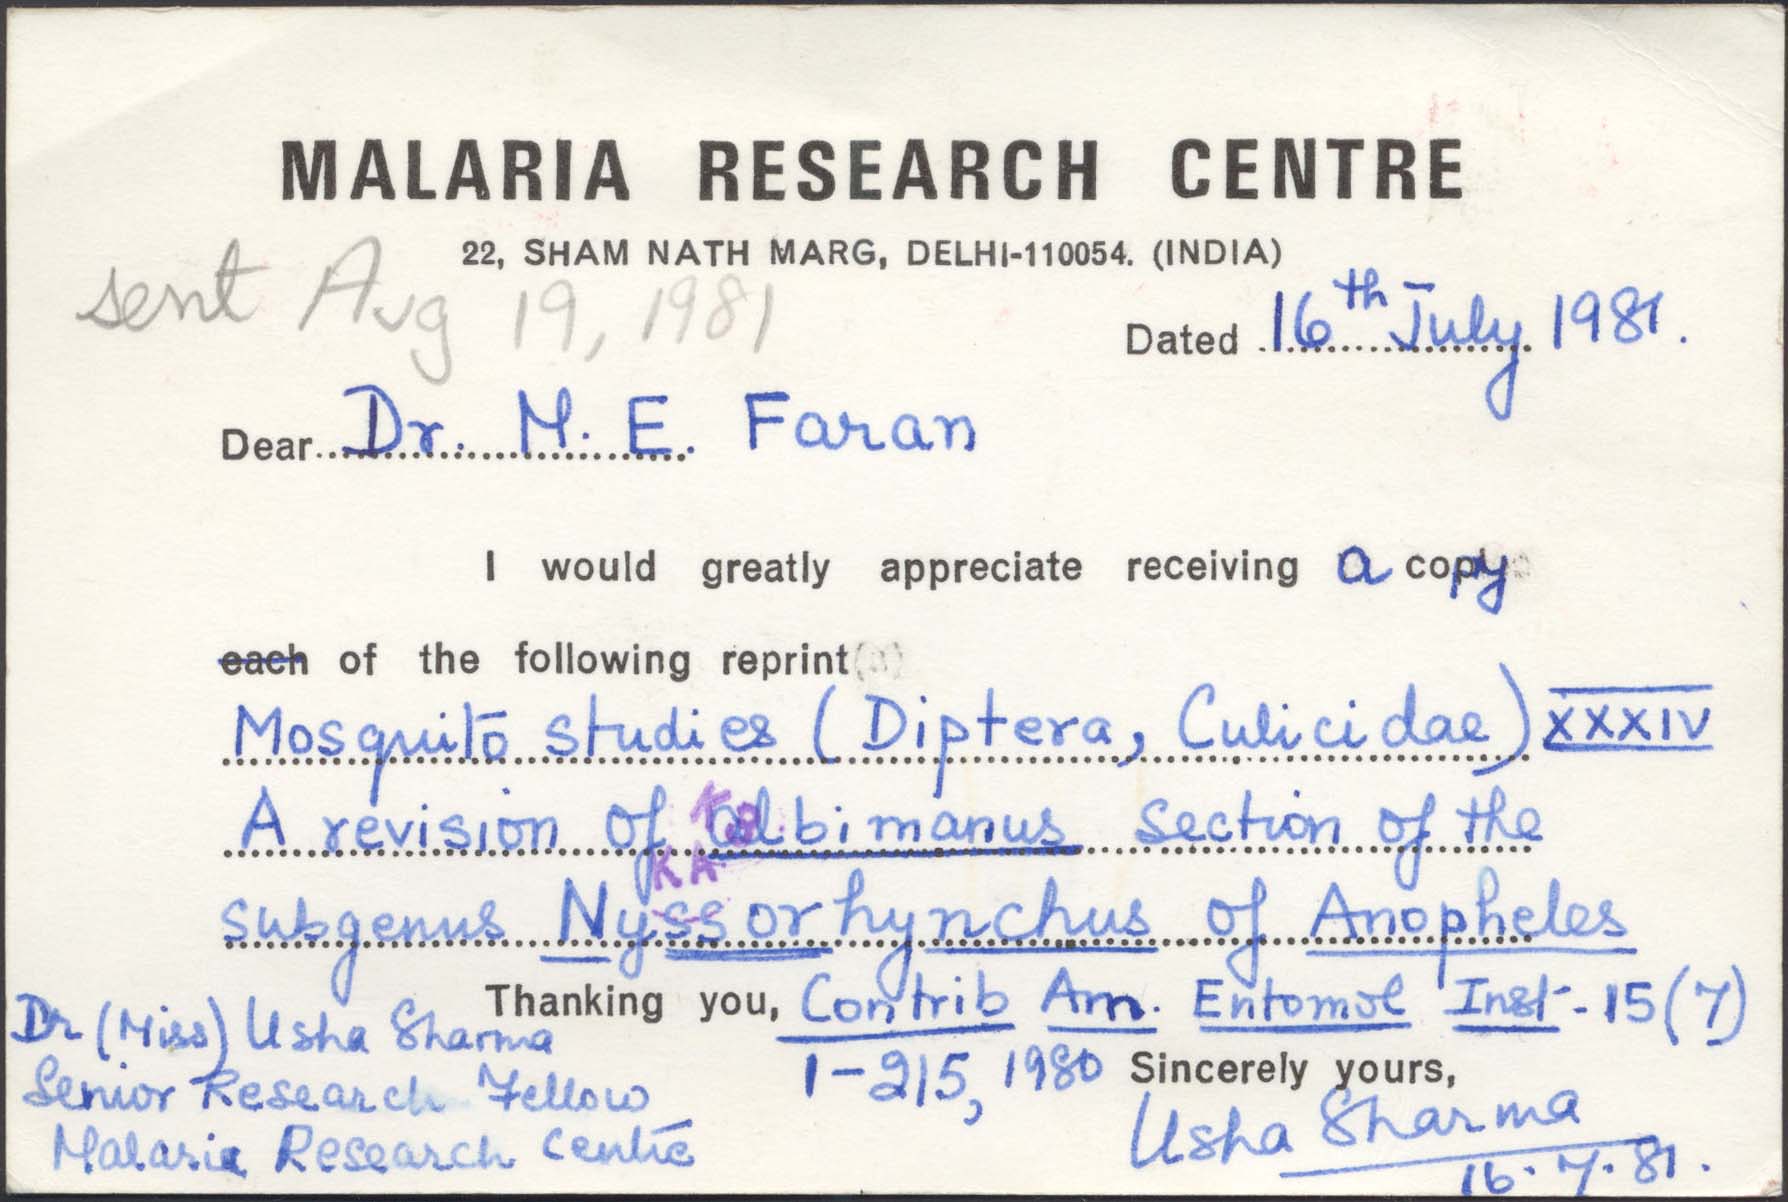 MALARIA RESEARCH CENTRE
22, SHAM NATH MARG, DELHI-110054. (INDIA)
sent Aug 19, 1981
Dated 16th July 1981.
Dear Dr. M. E. Faran
I would greatly appreciate receiving a copy
each of the following reprint
Mosquito studies (Diptera, Culicidae) XXXIV
A revision of albimanus section of the
subgenus Nyssorhynchus of Anopheles
Thanking you, Contrib Am. Entomol Inst - 15(7)
1-215, 1980
Sincerely yours,
Dr (Miss) Usha Sharma
Senior Research Fellow
Malaria Research Centre
Usha Sharma
16.7.81.